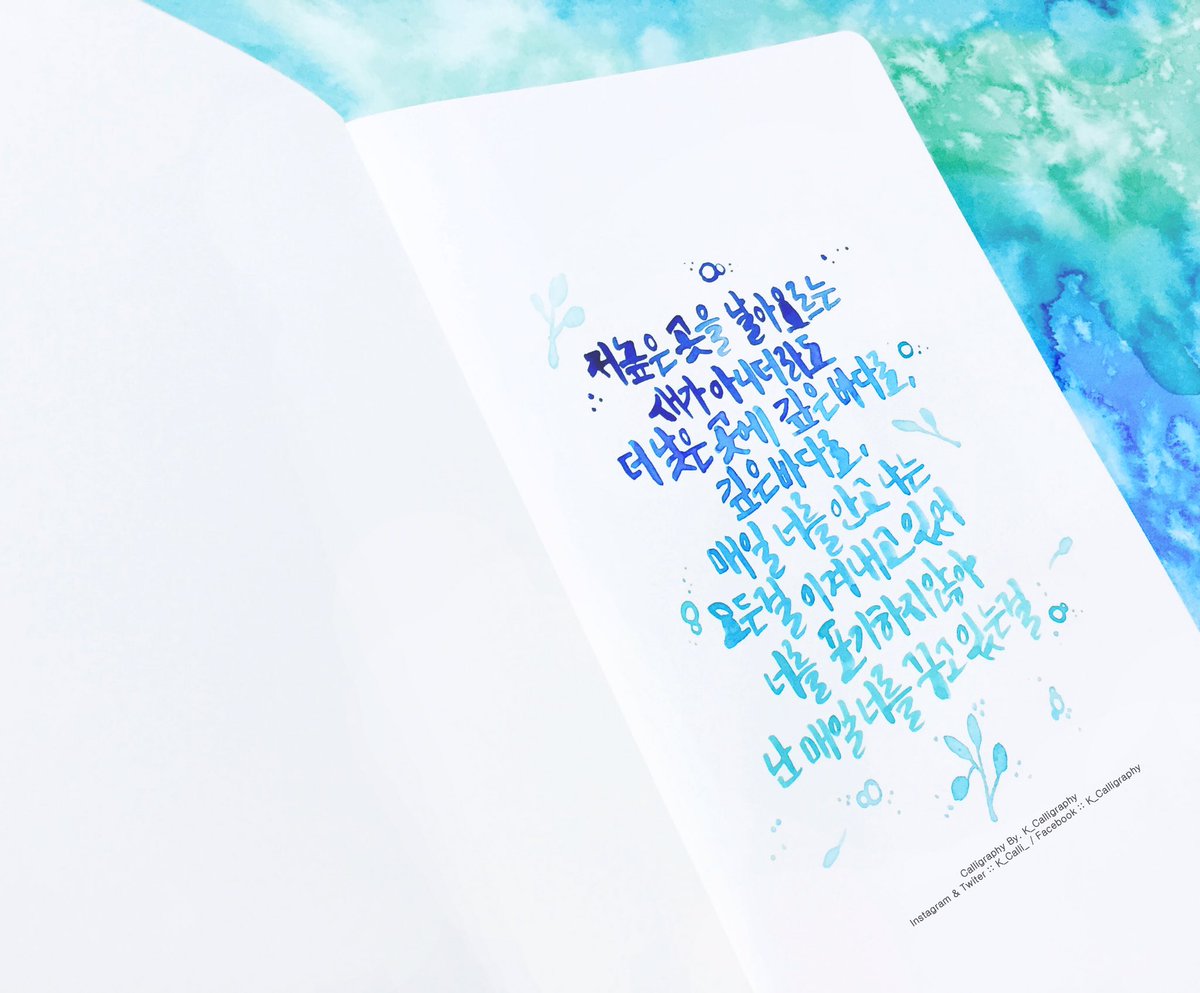 저 높은 곳을 날아오르는
새가 아니더라도
더 낮은 곳에 깊은 바다로,
깊은 바다로,
매일 너를 안고 나는
모든걸 이겨내고 있어
너를 포기하지 않아
난 매일 너를 꾸고 있는걸
Calligraphy By. K_Calligraphy
Instagram & Twiter :: K_Calli_ / Facebook :: K_Calligraphy